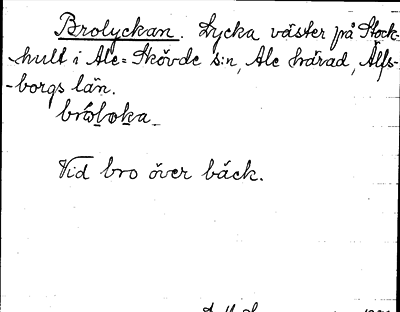 Brolyckan. Lycka väster på Stock-
-hult i Ale-Skövde s:n, Ale härad, Älfs-
-borgs län.
bróloka
Vid bro över bäck.